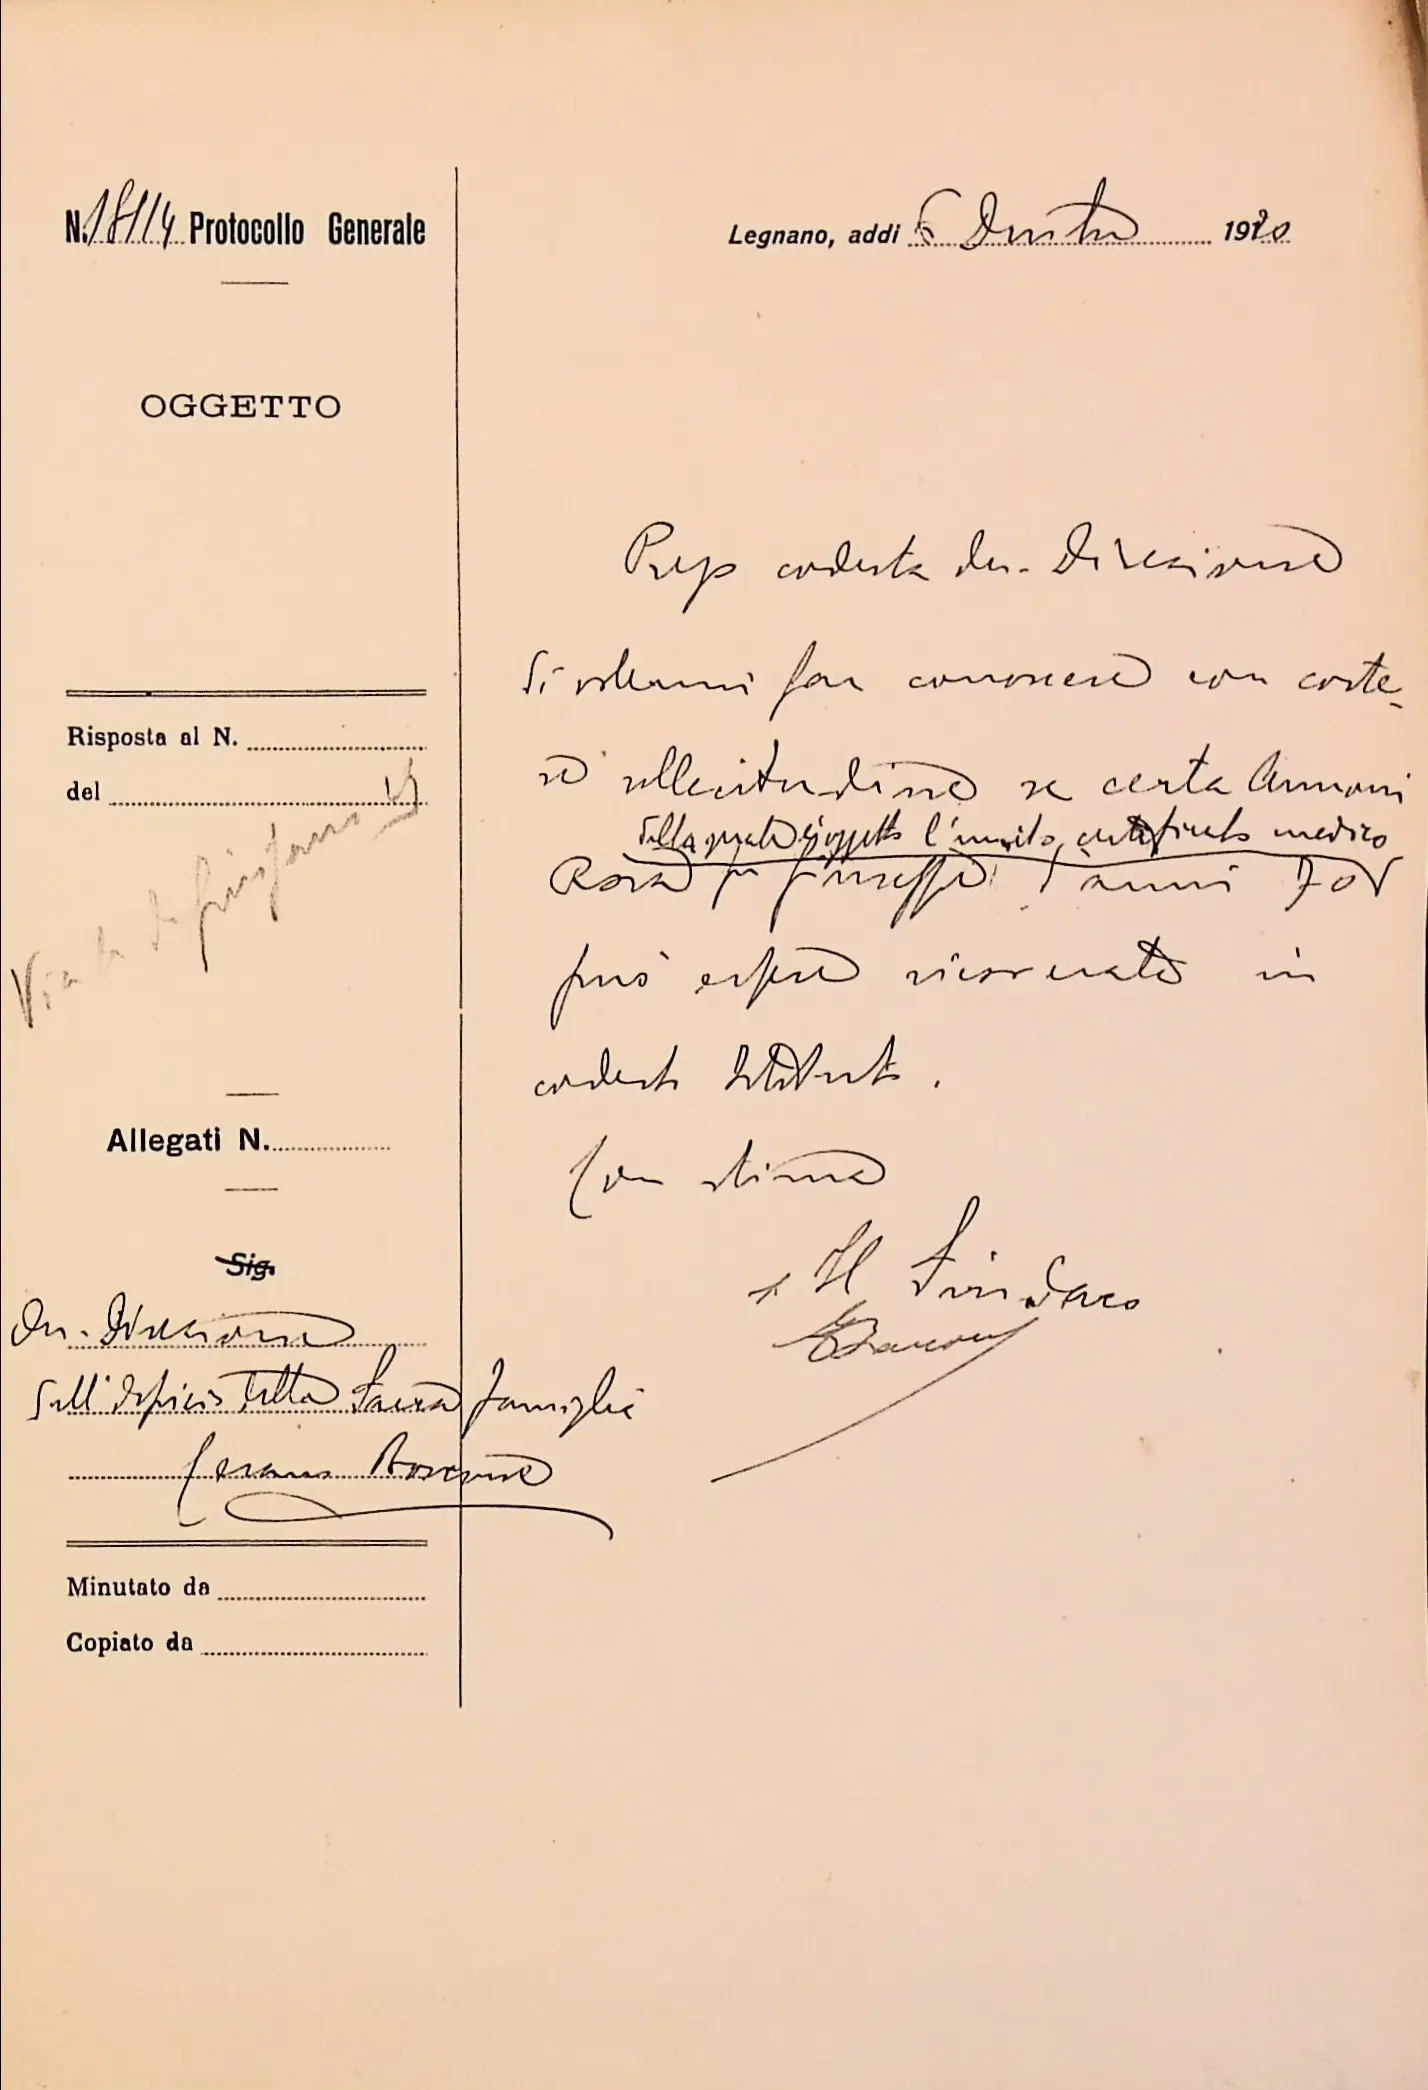 N. 18114 Protocollo Generale
Legnano, addì 6 Dicembre 1920
OGGETTO
Prego codesta On. Direzione
di volermi far conoscere con corte-
se sollecitudine se certa Annoni
della quale l'unito certificato medico
Rosa fu Giuseppe d'anni 70
può essere ricoverata in
codesto Istituto.
Con stima
Il Sindaco
Risposta al N.
del
Via
Allegati N.
Sig.
On. Direzione
dell'Ospizio della Sacra Famiglia
Cesano Boscone
Minutato da
Copiato da